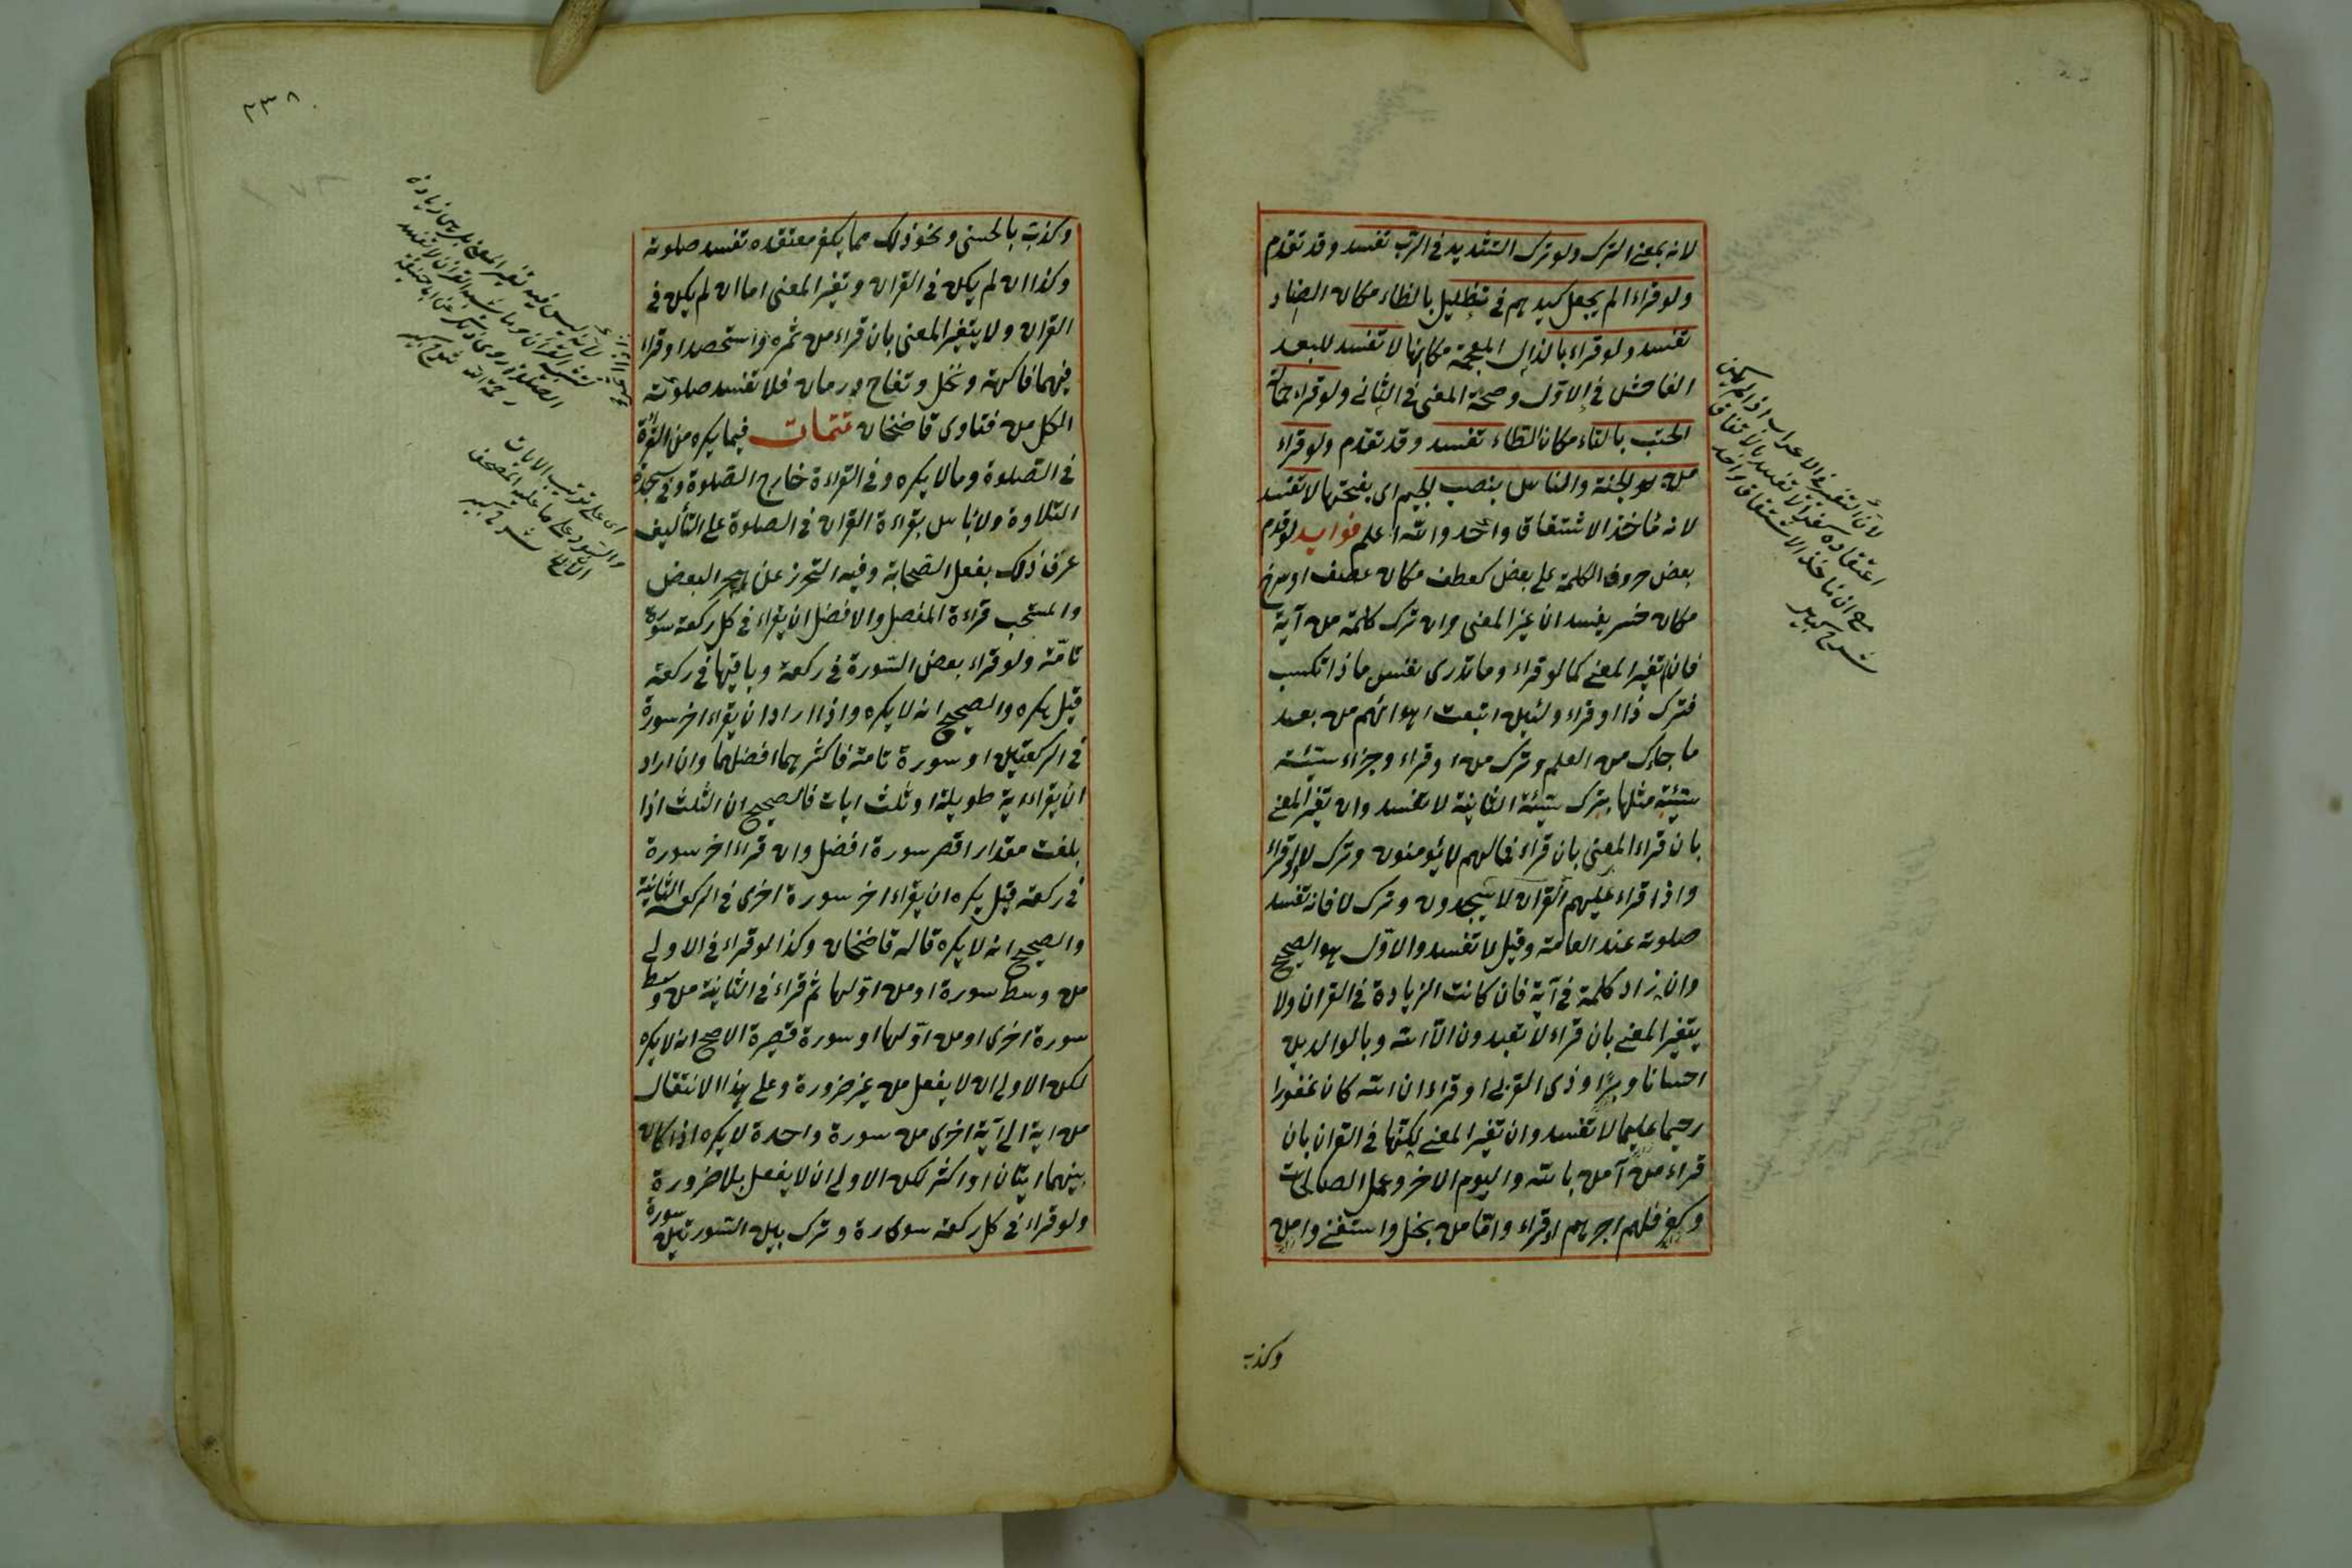 لانه بمعنى الترك ولو ترك التشديد فى الرب تفسد وقد تقدم
ولو قراء الم يجعل كيدهم فى تظليل بالظاء مكان الضاد
تفسد ولو قراء بالذال المعجمة مكانها لا تفسد للبعد
الفاحش فى الاول وصحة المعنى فى الثانى ولو قراء حمالة
الحتب بالتاء مكان الطاء تفسد وقد تقدم ولو قراء
من الجنة والناس بنصب الجيم اى بفتحها لا تفسد
لانه مأخذ الاشتقاق واحد والله اعلم فوايد لو قدم
بعض حروف الكلمة على بعض كعطف مكان عصف او سرخ
مكان خسر يفسد ان غير المعنى وان ترك كلمة من آية
فان لم تغير المعنى كما لو قراء وما تدرى نفس ماذا تكسب
فترك ذا او قراء ولئن اتبعت اهوائهم من بعد
ما جاءك من العلم وترك من او قراء وجزاء سيئة
سيئة مثلها بترك سيئة الثانية لا تفسد وان تغير المعنى
بان قراء المعنى بان قراء فمالهم لا يؤمنون وترك لا او قراء
واذا قراء عليهم القران لا يسجدون وترك لا فانه تفسد
صلوته عند العامة وقيل لا تفسد والاول هو الصحيح
وان زاد كلمة فى آية فان كانت الزيادة فى القران ولا
يتغير المعنى بان قراء لا تعبدون الا الله وبالوالدين
احسانا وبرا وذى القربى او قراء ان الله كان غفورا
رحيما عليما لا تفسد وان تغير المعنى لكنها فى القران بان
قراء من آمن بالله واليوم الاخر وعمل الصالحات
وكفر فلهم اجرهم او قراء واما من بخل واستغنى وامن
وكذب
لان التغيير فى الاعراب اذا لم يكن
اعتقاده كفرا لا تفسد بالاتفاق
مع ان مأخذ الاشتقاق واحد
شرح كبير
٢٣٨
وكذب بالحسنى ونحو ذلك مما يكفر معتقده تفسد صلوته
وكذا ان لم يكن فى القران وتغير المعنى اما ان لم يكن فى
القران ولا يتغير المعنى بان قراء من ثمره واستحصد او قرا
فيهما فاكهة ونخل وتفاح ورمان فلا تفسد صلوته
الكل من فتاوى قاضخان تتمات فيما يكره من القراءة
فى الصلوة وما لا يكره وفى القراءة خارج الصلوة وفى سجدة
التلاوة ولا باس بقراءة القران فى الصلوة على التأليف
عرف ذلك بفعل الصحابة وفيه التحرز عن هجر البعض
والمستحب قراءة المفصل والافضل ان يقراء فى كل ركعة سورة
تامة ولو قراء بعض السورة فى ركعة وباقيها فى ركعة
قيل يكره والصحيح انه لا يكره واذا اراد ان يقراء اخر سورة
فى الركعتين او سورة تامة فاكثرهما افضلهما وان اراد
ان يقراء اية طويلة او ثلث ايات فالصحيح ان الثلث اذا
بلغت مقدار اقصر سورة افضل وان قراء اخر سورة
فى ركعة قيل يكره ان يقراء اخر سورة اخرى فى الركعة الثانية
والصحيح انه لا يكره قاله قاضخان وكذا لو قراء فى الاولى
من وسط سورة او من اولها ثم قراء فى الثانية من وسط
سورة اخرى او من اولها او سورة قصيرة الاصح انه لا يكره
لكن الاولى ان لا يفعل من غير ضرورة وعلى هذا الانتقال
من اية الى آية اخرى من سورة واحدة لا يكره اذا كان
بينهما ايتان او اكثر لكن الاولى ان لا يفعل بلا ضرورة
ولو قراء فى كل ركعة سورة وترك بين السورتين سورة
لانه ليس فيه تغير المعنى بل هى زيادة
تشبه القرآن وما يشبه القران لا تفسد
الصلوة روى ذلك عن ابى حنيفة
رحمة الله شرح كبير
اى على ترتيب الايات
والسور على ما عليه المصحف
شرح كبير